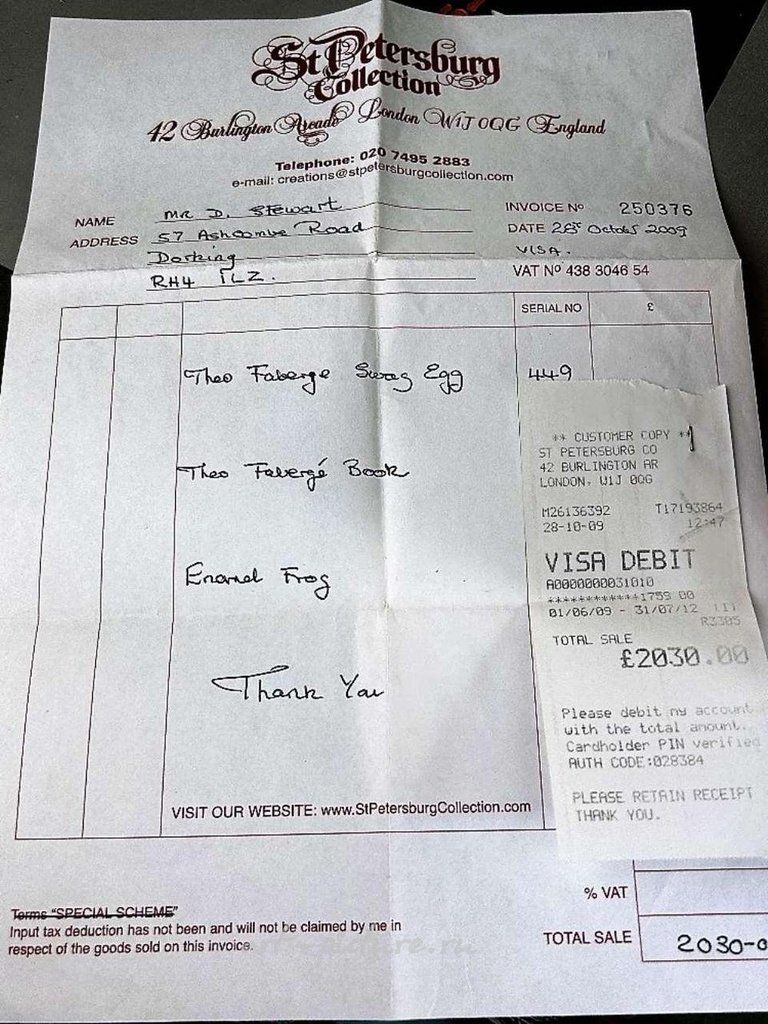 St Petersburg
Collection
42 Burlington Arcade London W1J 0QG England
Telephone: 020 7495 2883
e-mail: creations@stpetersburgcollection.com
NAME Mr D. Stewart
INVOICE Nº 250376
ADDRESS 57 Ashcombe Road
DATE 28th October 2009
Dorking
VISA.
RH4 1LZ.
VAT Nº 438 3046 54
SERIAL NO £
Theo Faberge Swag Egg 449
Theo Fabergé Book
Enamel Frog
Thank You
VISIT OUR WEBSITE: www.StPetersburgCollection.com
** CUSTOMER COPY **
ST PETERSBURG CO
42 BURLINGTON AR
LONDON, W1J 0QG
M26136392 T17193864
28-10-09 12:47
VISA DEBIT
A0000000031010
************1759 00
01/06/09 - 31/07/12
R3305
TOTAL SALE
£2030.00
Please debit my account
with the total amount.
Cardholder PIN verified
AUTH CODE:028384
PLEASE RETAIN RECEIPT
THANK YOU.
% VAT
TOTAL SALE 2030-0
Terms "SPECIAL SCHEME"
Input tax deduction has not been and will not be claimed by me in
respect of the goods sold on this invoice.